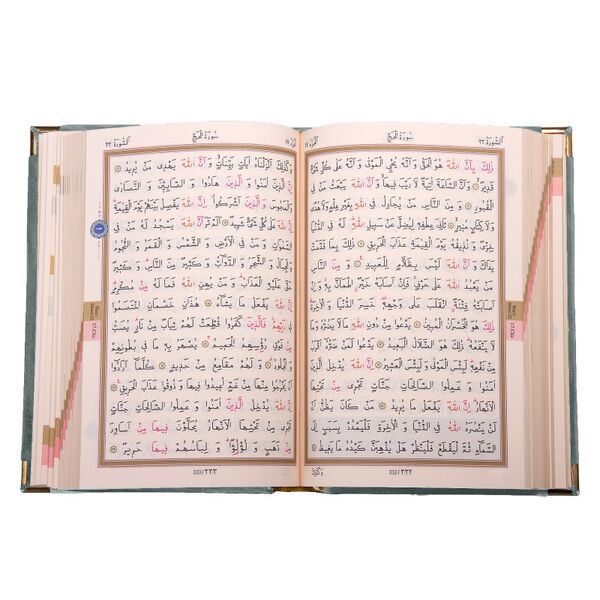 السُّورَة ٢٢
سُورَةُ الْحَجِّ
اَلْجُزْءُ ١٧
ذٰلِكَ بِاَنَّ اللّٰهَ هُوَ الْحَقُّ وَ اَنَّهُ يُحْيِ الْمَوْتٰى وَ اَنَّهُ عَلٰى كُلِّ شَىْءٍ
قَدِيرٌ وَ اَنَّ السَّاعَةَ اٰتِيَةٌ لَا رَيْبَ فِيهَا وَ اَنَّ اللّٰهَ يَبْعَثُ مَنْ فِى
الْقُبُورِ وَ مِنَ النَّاسِ مَنْ يُجَادِلُ فِى اللّٰهِ بِغَيْرِ عِلْمٍ وَلَا هُدًى
وَلَا كِتَابٍ مُنِيرٍ ثَانِىَ عِطْفِهِ لِيُضِلَّ عَنْ سَبِيلِ اللّٰهِ لَهُ فِى الدُّنْيَا
خِزْىٌ وَ نُذِيقُهُ يَوْمَ الْقِيٰمَةِ عَذَابَ الْحَرِيقِ ذٰلِكَ بِمَا قَدَّمَتْ
يَدَاكَ وَ اَنَّ اللّٰهَ لَيْسَ بِظَلَّامٍ لِلْعَبِيدِ وَ مِنَ النَّاسِ مَنْ
يَعْبُدُ اللّٰهَ عَلٰى حَرْفٍ فَاِنْ اَصَابَهُ خَيْرٌ اطْمَاَنَّ بِهِ وَ اِنْ
اَصَابَتْهُ فِتْنَةٌ انْقَلَبَ عَلٰى وَجْهِهِ خَسِرَ الدُّنْيَا وَ الْاٰخِرَةَ
ذٰلِكَ هُوَ الْخُسْرَانُ الْمُبِينُ يَدْعُوا مِنْ دُونِ اللّٰهِ مَا لَا يَضُرُّهُ وَ مَا
لَا يَنْفَعُهُ ذٰلِكَ هُوَ الضَّلَالُ الْبَعِيدُ يَدْعُوا لَمَنْ ضَرُّهُ اَقْرَبُ
مِنْ نَفْعِهِ لَبِئْسَ الْمَوْلٰى وَ لَبِئْسَ الْعَشِيرُ اِنَّ اللّٰهَ يُدْخِلُ
الَّذِينَ اٰمَنُوا وَ عَمِلُوا الصَّالِحَاتِ جَنَّاتٍ تَجْرِى مِنْ تَحْتِهَا
الْاَنْهَارُ اِنَّ اللّٰهَ يَفْعَلُ مَا يُرِيدُ مَنْ كَانَ يَظُنُّ اَنْ لَنْ
يَنْصُرَهُ اللّٰهُ فِى الدُّنْيَا وَ الْاٰخِرَةِ فَلْيَمْدُدْ بِسَبَبٍ اِلَى
السَّمَاءِ ثُمَّ لْيَقْطَعْ فَلْيَنْظُرْ هَلْ يُذْهِبَنَّ كَيْدُهُ مَا يَغِيظُ
332/٣٣٢
وَكَذٰلِكَ
السُّورَة ٢٢
سُورَةُ الْحَجِّ
اَلْجُزْءُ ١٧
وَ كَذٰلِكَ اَنْزَلْنَاهُ اٰيَاتٍ بَيِّنَاتٍ وَ اَنَّ اللّٰهَ يَهْدِى مَنْ يُرِيدُ
اِنَّ الَّذِينَ اٰمَنُوا وَ الَّذِينَ هَادُوا وَ الصَّابِئِينَ وَ النَّصَارٰى
وَ الْمَجُوسَ وَ الَّذِينَ اَشْرَكُوا اِنَّ اللّٰهَ يَفْصِلُ بَيْنَهُمْ يَوْمَ الْقِيٰمَةِ
اِنَّ اللّٰهَ عَلٰى كُلِّ شَىْءٍ شَهِيدٌ اَلَمْ تَرَ اَنَّ اللّٰهَ يَسْجُدُ لَهُ مَنْ فِى
السَّمٰوَاتِ وَ مَنْ فِى الْاَرْضِ وَ الشَّمْسُ وَ الْقَمَرُ وَ النُّجُومُ
وَ الْجِبَالُ وَ الشَّجَرُ وَ الدَّوَابُّ وَ كَثِيرٌ مِنَ النَّاسِ وَ كَثِيرٌ
حَقَّ عَلَيْهِ الْعَذَابُ وَ مَنْ يُهِنِ اللّٰهُ فَمَا لَهُ مِنْ مُكْرِمٍ
اِنَّ اللّٰهَ يَفْعَلُ مَا يَشَاءُ هٰذَانِ خَصْمَانِ اخْتَصَمُوا
فِى رَبِّهِمْ فَالَّذِينَ كَفَرُوا قُطِّعَتْ لَهُمْ ثِيَابٌ مِنْ نَارٍ يُصَبُّ
مِنْ فَوْقِ رُؤُسِهِمُ الْحَمِيمُ يُصْهَرُ بِهِ مَا فِى بُطُونِهِمْ
وَ الْجُلُودُ وَ لَهُمْ مَقَامِعُ مِنْ حَدِيدٍ كُلَّمَا اَرَادُوا
اَنْ يَخْرُجُوا مِنْهَا مِنْ غَمٍّ اُعِيدُوا فِيهَا وَ ذُوقُوا عَذَابَ الْحَرِيقِ
اِنَّ اللّٰهَ يُدْخِلُ الَّذِينَ اٰمَنُوا وَ عَمِلُوا الصَّالِحَاتِ جَنَّاتٍ
تَجْرِى مِنْ تَحْتِهَا الْاَنْهَارُ يُحَلَّوْنَ فِيهَا مِنْ اَسَاوِرَ
مِنْ ذَهَبٍ وَ لُؤْلُؤًا وَ لِبَاسُهُمْ فِيهَا حَرِيرٌ
333/٣٣٣
17.Cüz
17.Cüz